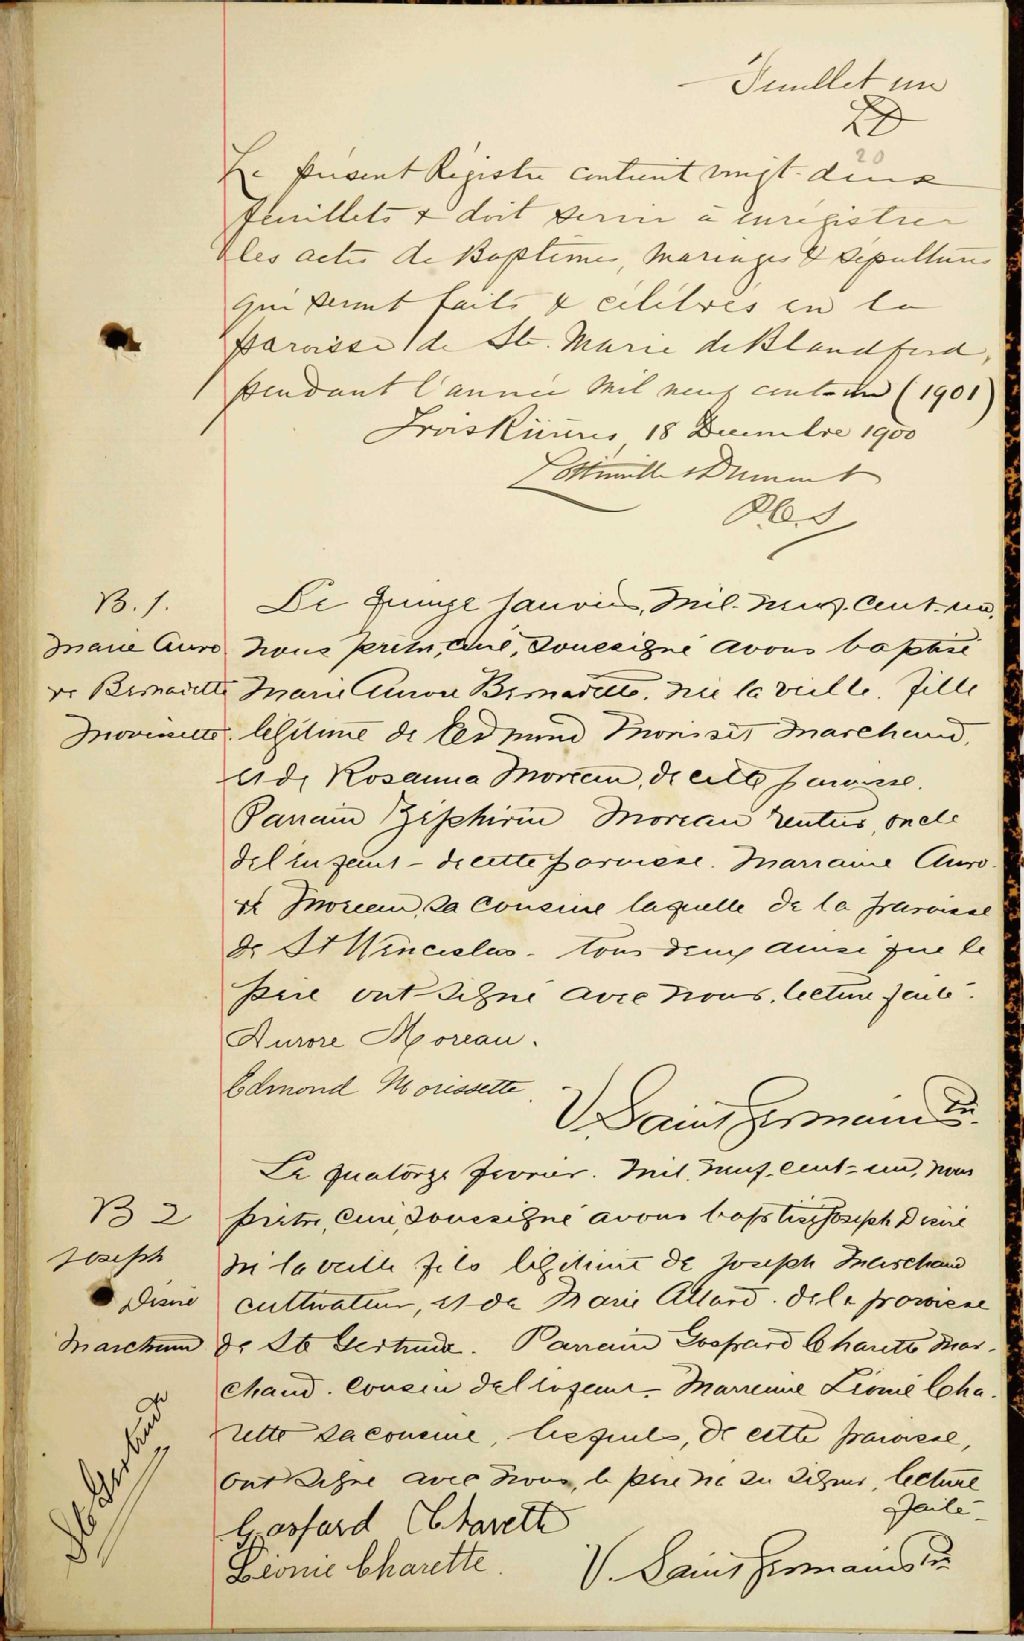 Feuillet un
LD
20
Le présent Régistre contient vingt-deux
feuillets & doit servir à enrégistrer
les actes de Baptêmes, Mariages & sépultures
qui seront faits & célébrés en la
paroisse de Ste. Marie de Blandford,
pendant l'année Mil neuf cent-un (1901)
Trois Rivières, 18 Decembre 1900
Dumont
P.C.S
B. 1.
Marie Auro
re Bernadette
Morissette.
Le quinze janvier, mil-neuf-cent-un,
nous prêtre, curé, soussigné avons baptisé
Marie Aurore Bernadette. née la veille. fille
légitime de Edmond Morisset Marchand,
et de Rosanna Moreau, de cette paroisse.
Parrain Zéphirin Moreau rentier, oncle
del'enfant - decette paroisse. Marraine Auro-
re Moreau, sa cousine laquelle de la paroisse
de St Wenceslas. tous deux ainsi que le
père ont signé avec nous. lecture faite.
Aurore Moreau.
Edmond Morissette.
V. Saint Germain Ptr.
B 2
Joseph
Désiré
Marchand
Ste Gertrude
Le quatorze fevrier. mil. neuf-cent-un, nous
prêtre, curé, soussigné avons baptisé Joseph Désiré
né la veille fils légitime de Joseph Marchand
cultivateur, et de Marie Allard. de la paroisse
de Ste Gertrude. Parrain Gaspard Charette Mar-
chand. cousin del'enfant - Marraine Léonie Cha-
rette sa cousine, lesquels, de cette paroisse,
ont signé avec nous, le père n'a su signer, lecture
faite-
Gaspard Charette
Léonie Charette.
V. Saint Germain Ptr.